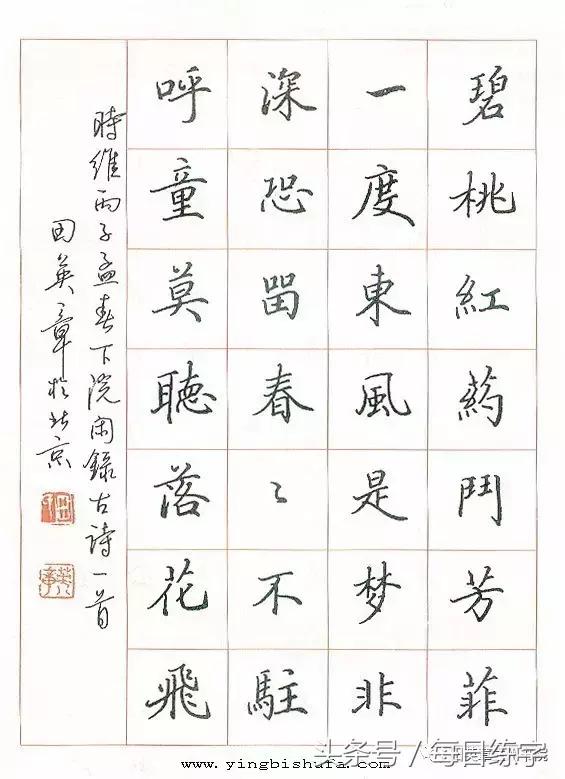 碧桃紅葯鬥芳菲
一度東風是梦非
深恐留春〻不駐
呼童莫聽落花飛
時維丙子孟春下浣閑錄古詩一首
田英章於北京
头条号／每日练字
www.yingbishufa.com